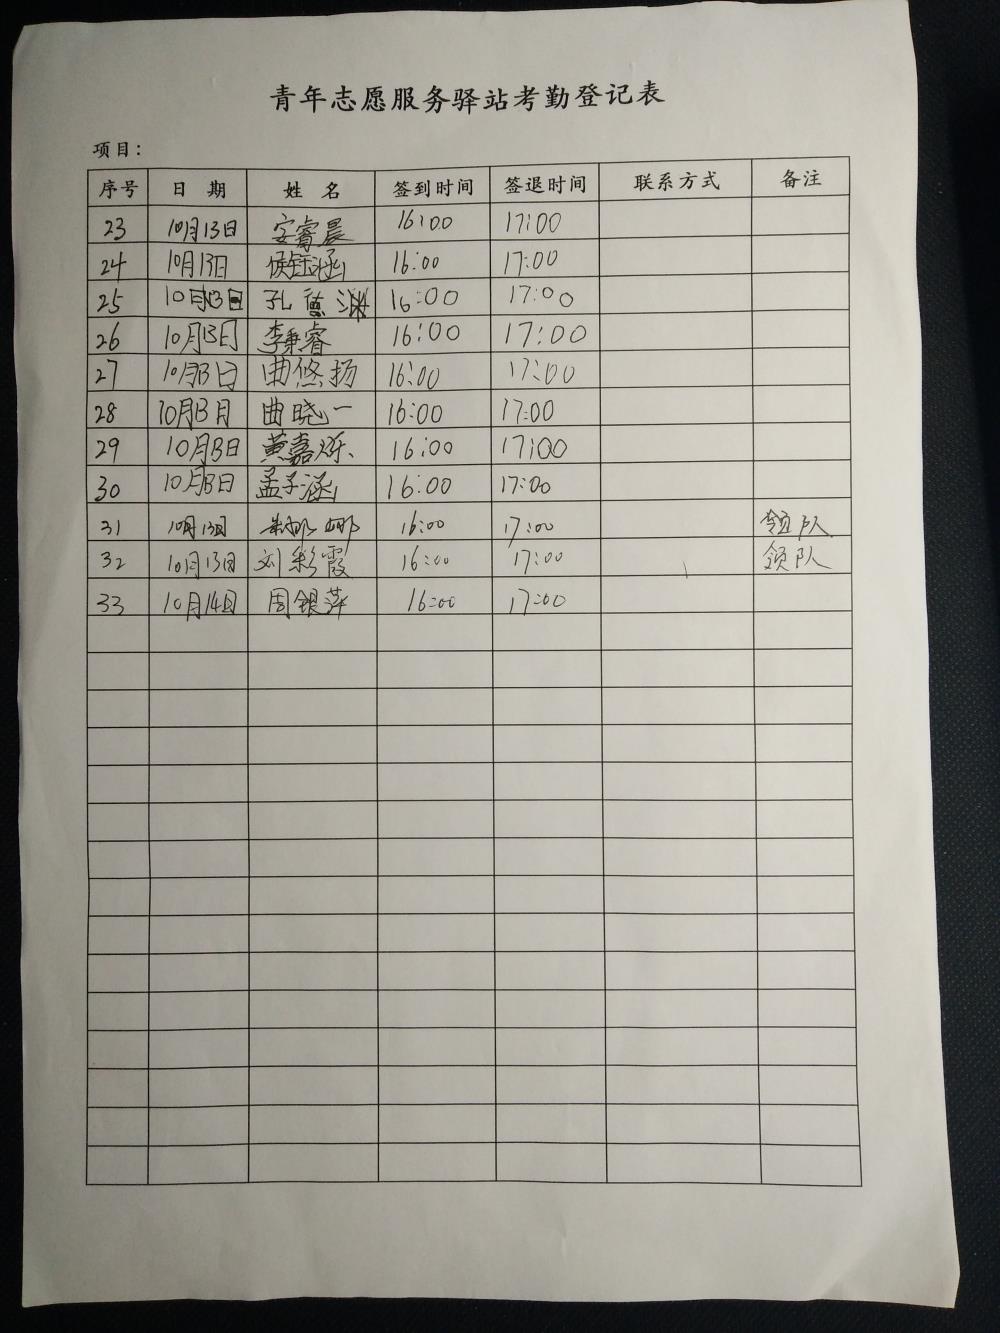 青年志愿服务驿站考勤登记表
项目：
序号 日 期 姓 名 签到时间 签退时间 联系方式 备注
23 10月13日 安睿晨 16:00 17:00
24 10月13日 侯钰涵 16:00 17:00
25 10月13日 孔德渊 16:00 17:00
26 10月13日 李秉睿 16:00 17:00
27 10月13日 曲悠扬 16:00 17:00
28 10月13月 曲晓一 16:00 17:00
29 10月13日 黄嘉烁 16:00 17:00
30 10月13日 孟子涵 16:00 17:00
31 10月13日 16:00 17:00 领队
32 10月13日 刘彩霞 16:00 17:00 领队
33 10月14日 周银萍 16:00 17:00